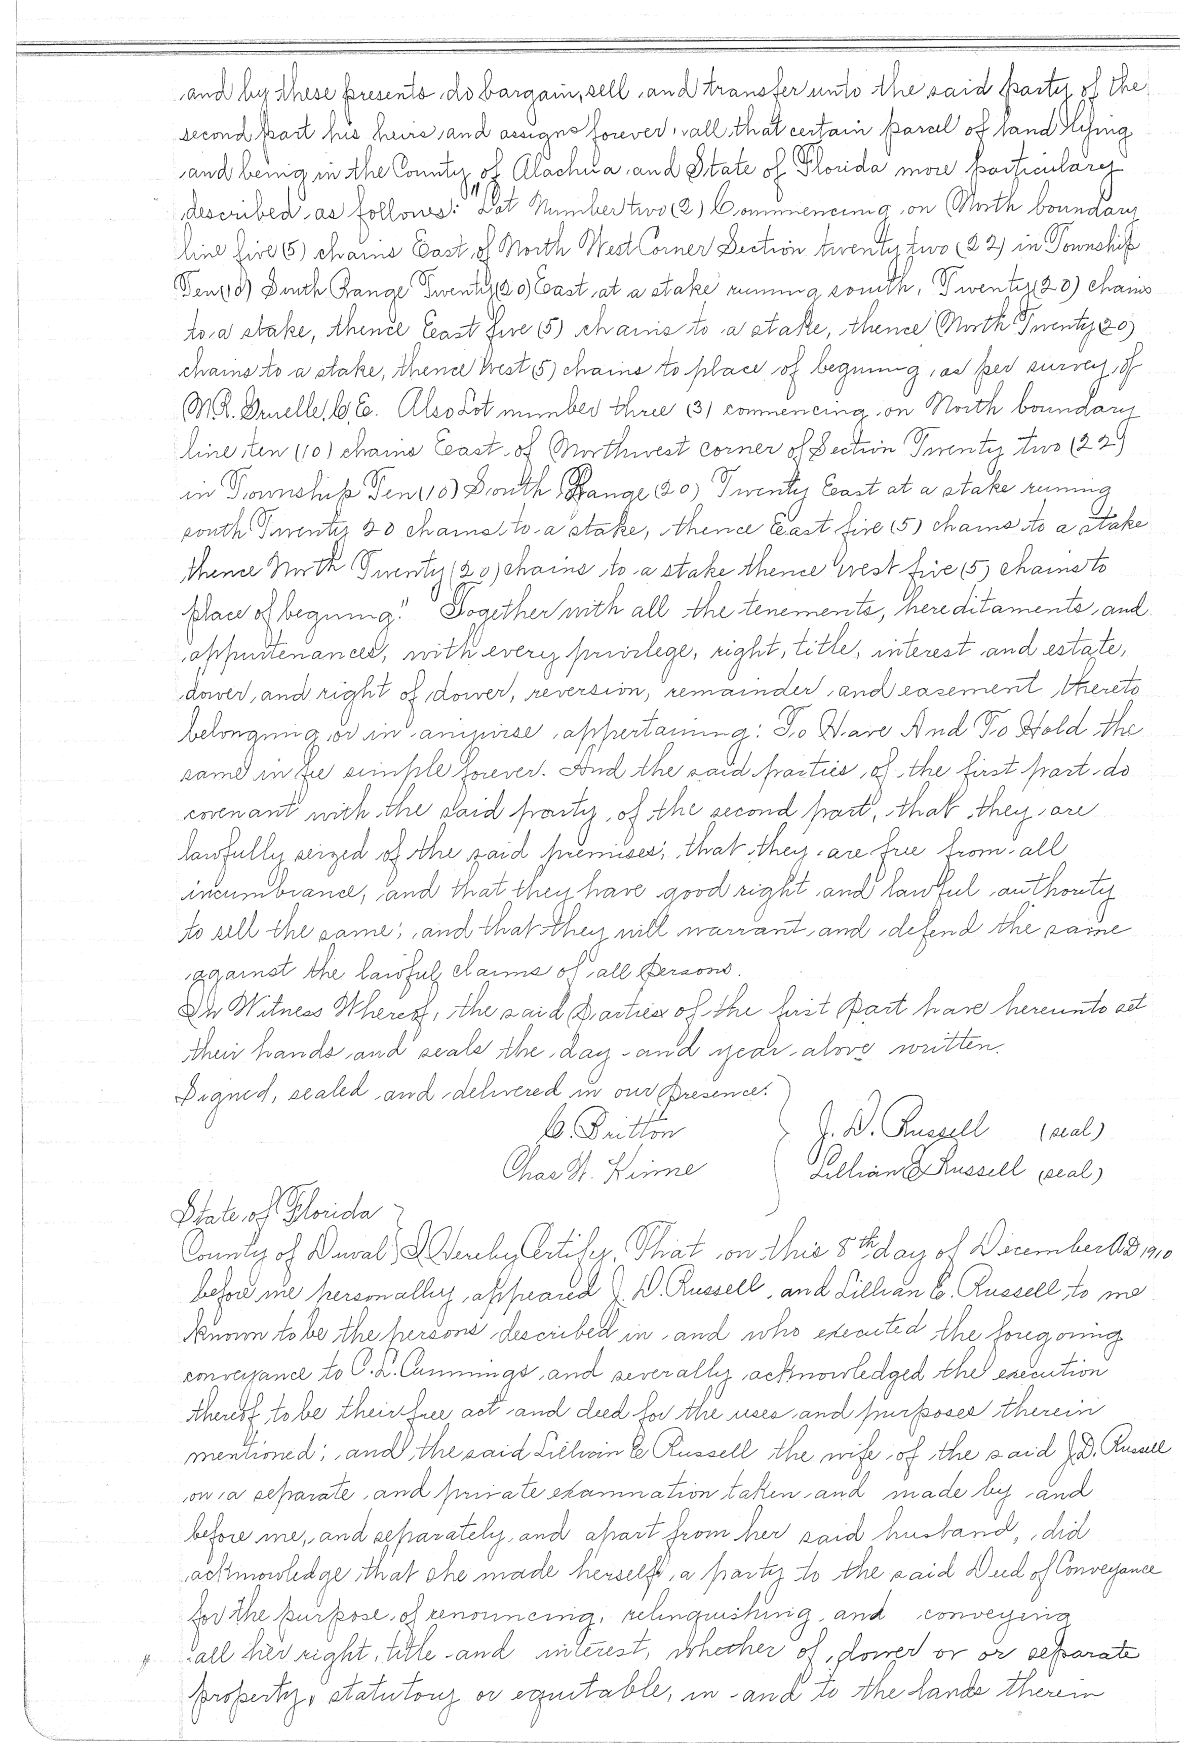 and by these presents do bargain, sell and transfer unto the said party of the
second part his heirs and assigns forever, all that certain parcel of land lying
and being in the County of Alachua and State of Florida more particulary
described as follows: "Lot Number two (2) Commencing on North boundary
line five (5) chains East of North West Corner Section twenty two (22) in Township
Ten (10) South Range Twenty (20) East at a stake runing south, Twenty (20) chains
to a stake, thence East five (5) chains to a stake, thence North Twenty (20)
chains to a stake, thence West (5) chains to place of begining, as per survey of
C. E. Also Lot number three (3) commencing on North boundary
line ten (10) chains East of Northwest corner of Section Twenty two (22)
in Township Ten (10) South Range (20) Twenty East at a stake runing
south Twenty 20 chains to a stake, thence East five (5) chains to a stake
thence North Twenty (20) chains to a stake thence West five (5) chains to
place of begining." Together with all the tenements, hereditaments and
appurtenances, with every privilege, right, title, interest and estate,
dower, and right of dower, reversion, remainder and easement thereto
belonging or in anywise appertaining: To Have And To Hold the
same in fee simple forever. And the said parties of the first part do
covenant with the said party of the second part, that they are
lawfully seized of the said premises; that they are free from all
incumbrance, and that they have good right and lawful authority
to sell the same; and that they will warrant and defend the same
against the lawful claims of all persons.
In Witness Whereof, the said Parties of the first Part have hereunto set
their hands and seals the day and year above written.
Signed, sealed and delivered in our presence.
C. Britton J. D. Russell (seal)
Chas H. Lillian E Russell (seal)
State of Florida
County of Duval I Hereby Certify, That on this 8th day of December AD 1910
before me personally appeared J. D. Russell and Lillian E. Russell to me
known to be the persons described in and who executed the foregoing
conveyance to C. L. Cummings and severally acknowledged the execution
thereof to be their free act and deed for the uses and purposes therein
mentioned; and the said Lillian E Russell the wife of the said J. D. Russell
on a separate and private examnation taken and made by and
before me, and separately and apart from her said husband, did
acknowledge that she made herself a party to the said Deed of Conveyance
for the purpose of renouncing, relinquishing and conveying
all her right, title and interest, whether of dower or or separate
property, statutory or equitable, in and to the lands therein